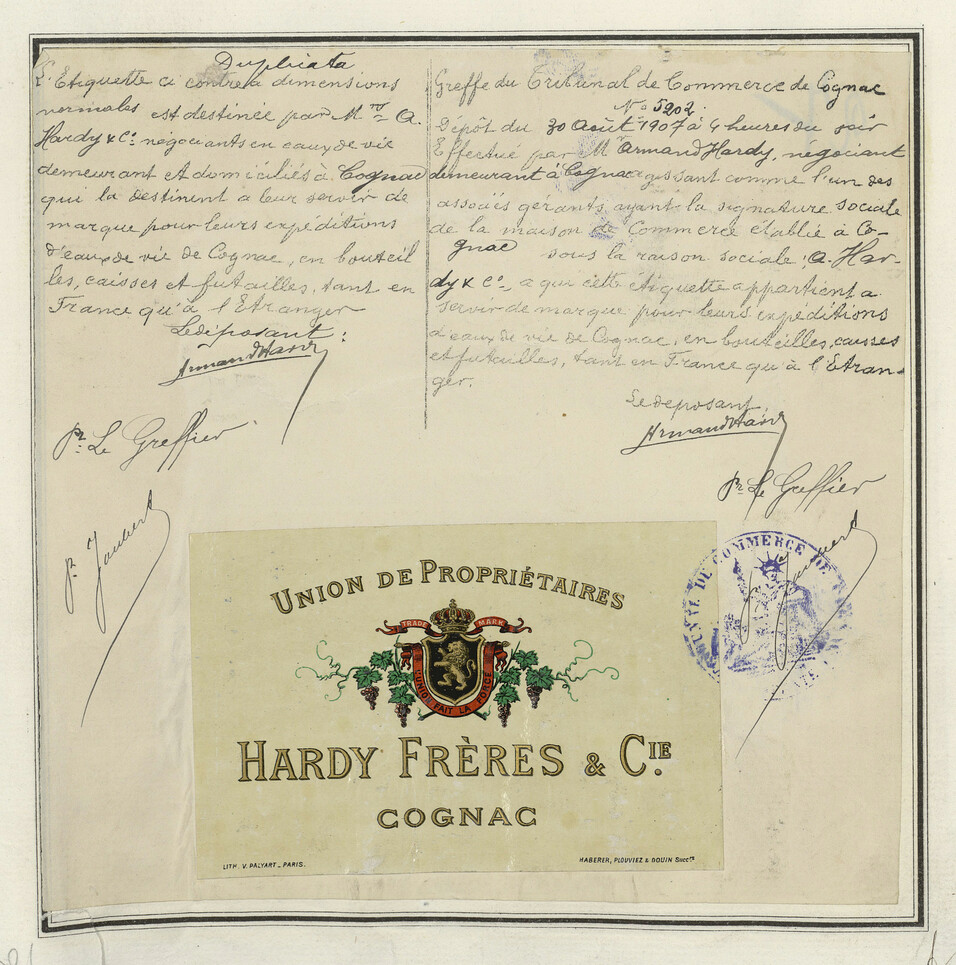 Duplicata
L'Etiquette ci contre a dimensions
normales est destinée par M.rs A.
Hardy & Cie négociants en eaux de vie
demeurant et domiciliés à Cognac
qui la destinent a leur servir de
marque pour leurs expéditions
d'eaux de vie de Cognac, en bouteil
les, caisses et futailles, tant en
France qu'à l'Etranger
Le déposant :
Armand Hardy
Pr. Le Greffier
Pr. Jaubert
Greffe du Tribunal de Commerce de Cognac
No 5202.
Dépôt du 30 Août 1907 à 4 heures du soir
Effectué par M Armand Hardy, négociant
demeurant à Cognac agissant comme l'un des
associés gérants ayant la signature sociale
de la maison de Commerce établie à Co-
gnac sous la raison sociale : A. Har-
dy & Co, a qui cette étiquette appartient a
servir de marque pour leurs expéditions
d'eaux de vie de Cognac, en bouteilles, caisses
et futailles, tant en France qu'à l'Etran-
ger.
Le deposant
Armand Hardy
Pr. Le Greffier
Jaubert
DU COMMERCE DE
UNION DE PROPRIÉTAIRES
TRADE MARK
L'UNION FAIT LA FORCE
HARDY FRÈRES & CIE.
COGNAC
LITH. V. PALYART _ PARIS.
HABERER, PLOUVIEZ & DOUIN Succrs